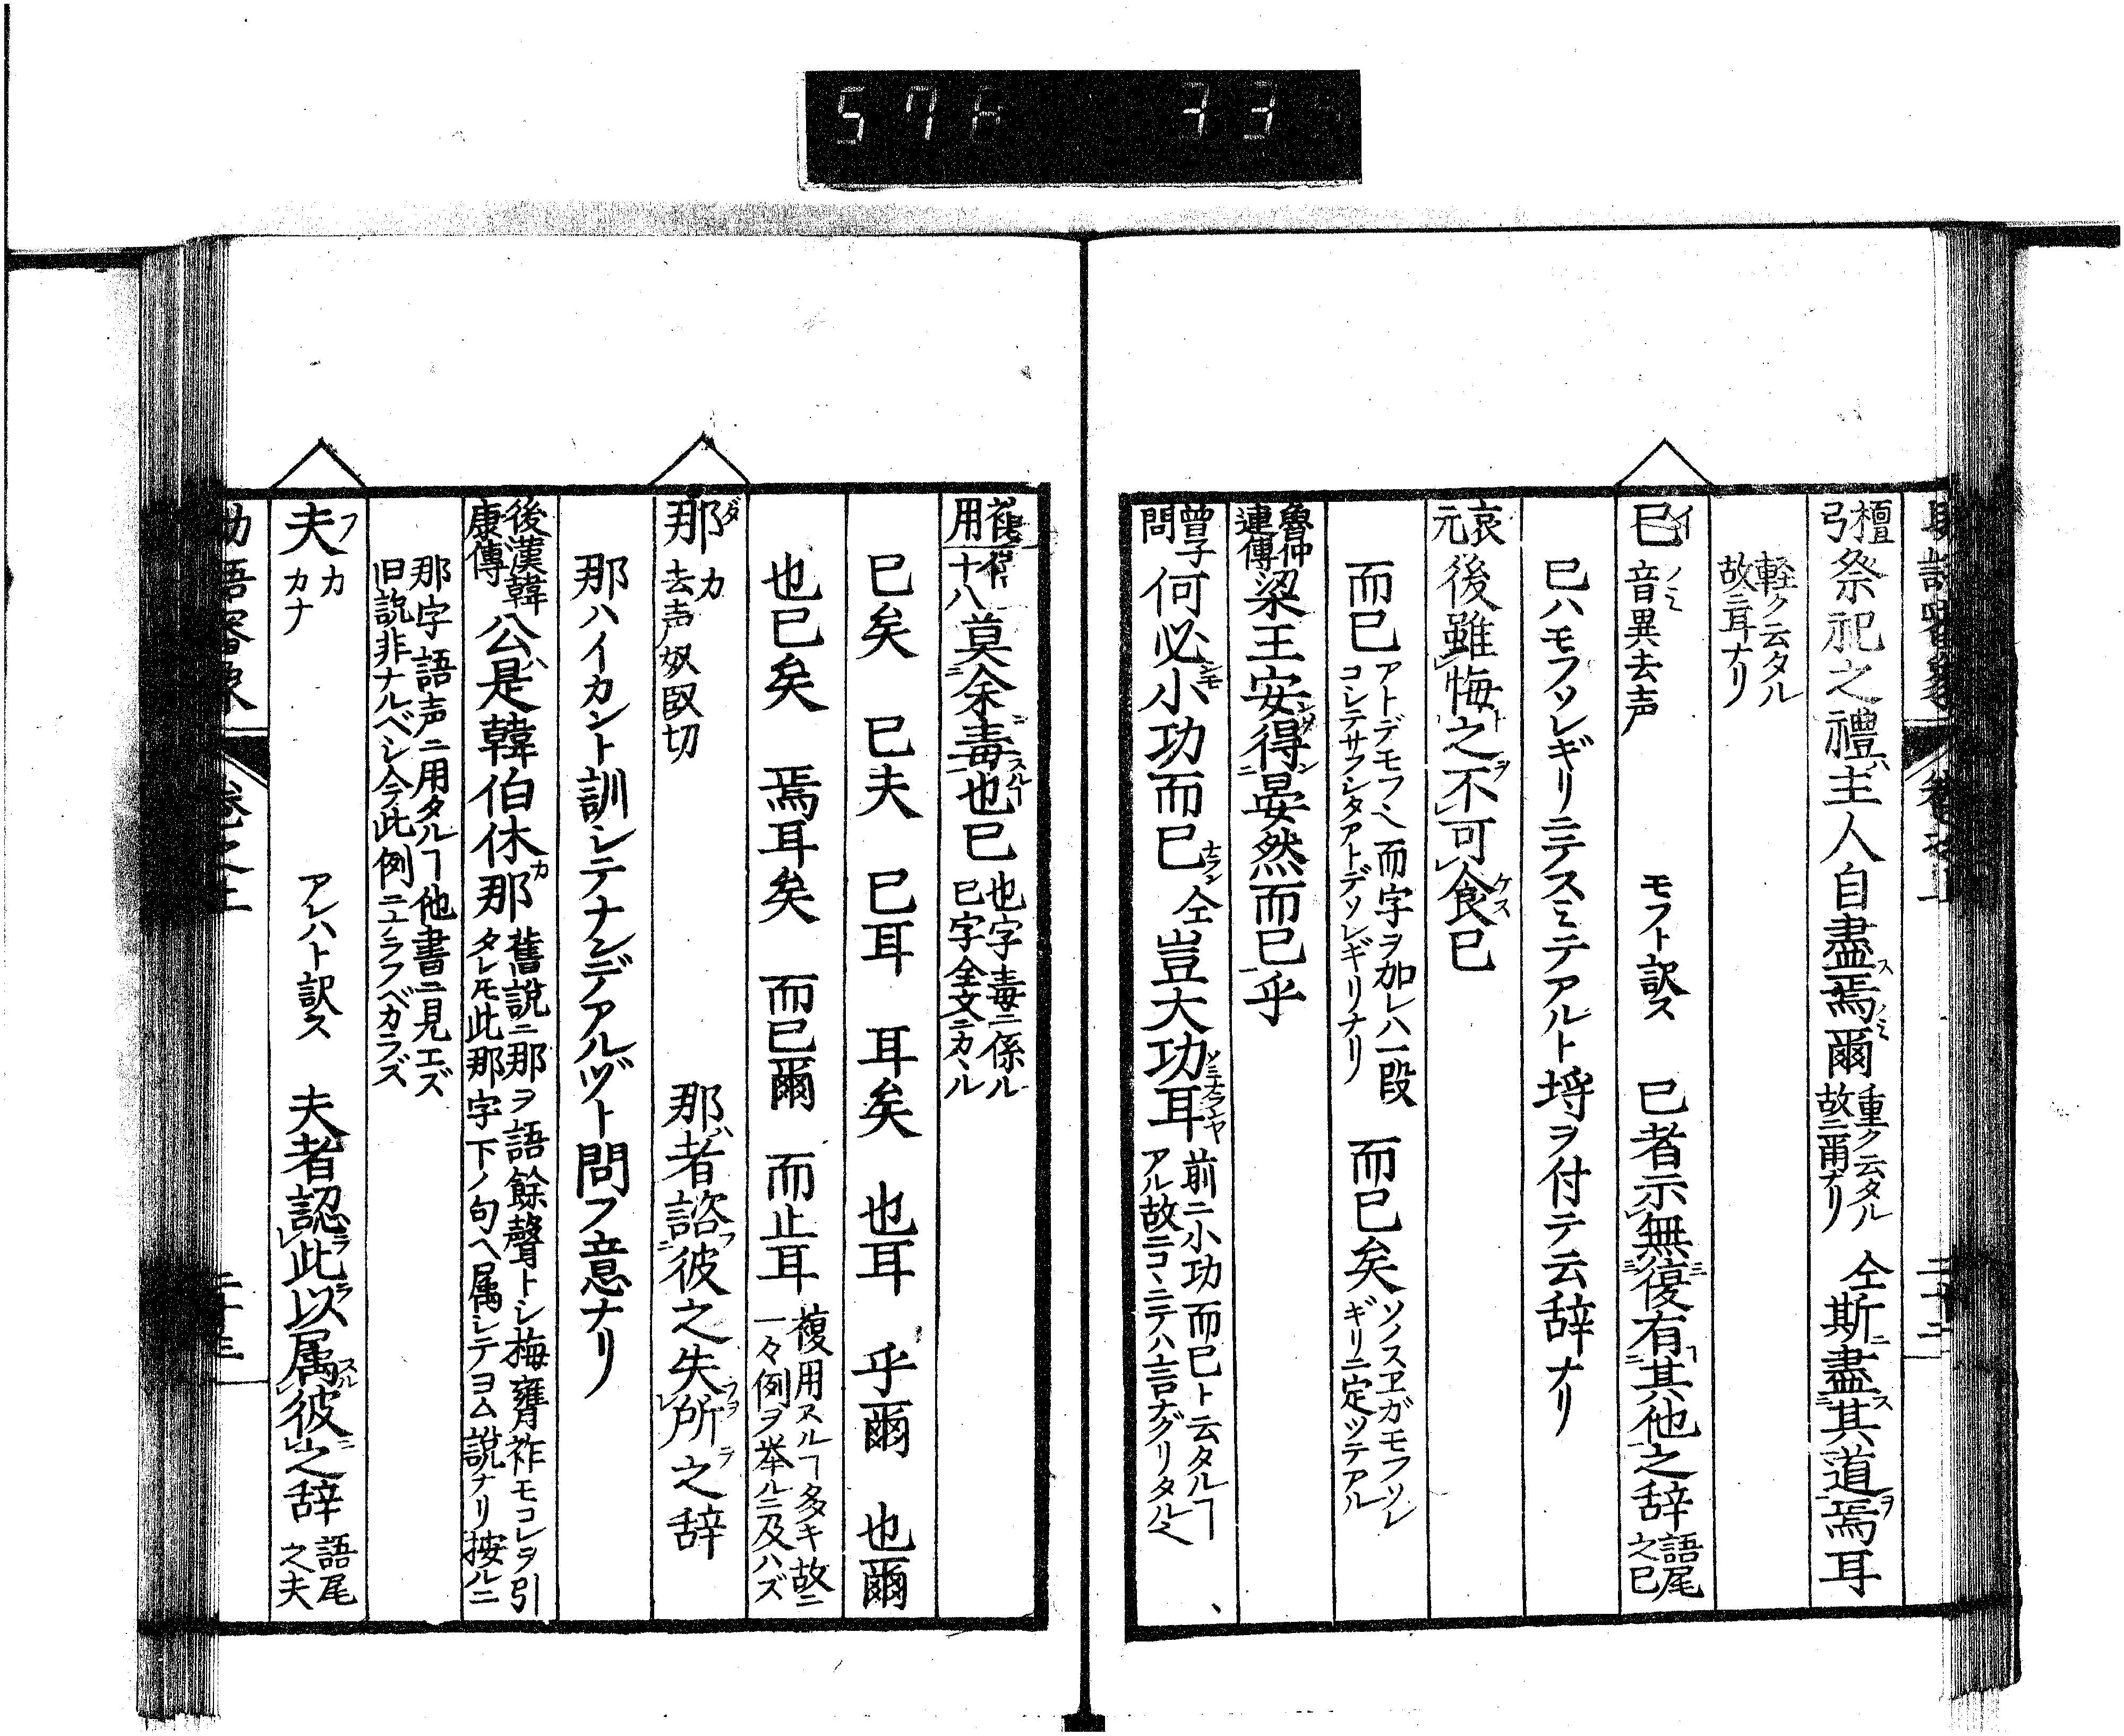 檀弓 祭祀之禮ハ主人自盡ス焉爾ノミ 重ク云タル故ニ爾ナリ 仝 斯ニ盡ス其道ヲ焉耳
軽ク云タル故ニ耳ナリ
已イ ノミ 音異去声 モフト訳ス 已者示無復有其他之辞 語尾之已
已ハモフソレギリニテスミテアルト埒ヲ付テ云辞ナリ
哀元 後雖悔之不可食已
而已 アトデモフヘ而字ヲ加レハ一段コレテサフシタアトデソレギリナリ 而已矣 ソノスヱガモフソレギリニ定ツテアル
魯仲連傳 梁王安得晏然而已乎
曽子問 何必小功而已 仝 豈大功耳 前ニ小功而已ト云タルヿアル故ニコヽニテハ言ナグリタル
用 十八 莫余毒也已 也字毒ニ係ル已字全文ニカヽル
已矣 已夫 已耳 耳矣 也耳 乎爾 也爾
也已矣 焉耳矣 而已爾 而止耳 複用スルヿ多キ故ニ一々例ヲ挙ルニ及ハズ
那ダ カ 去声奴臥切 那ハ者諮彼之失所之辞
那ハイカント訓シテナンデアルゾト問フ意ナリ
後漢韓康傳 公ハ是韓伯休那カ 舊説ニ那ヲ語餘聲トシ梅膺祚モコレヲ引タレ𪜈此那字下ノ句ヘ属シテヨム説ナリ按ルニ
那字語声ニ用タルヿ他書ニ見エズ旧説非ナルベシ今此例ニナラフベカラズ
夫フ カ カナ アレハト訳ス 夫者認此以属彼之辞 語尾之夫
助語審象 巻之上